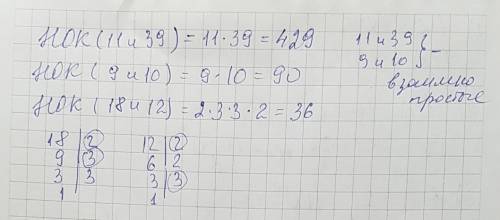 НОК (11 и 39) = 11 · 39 = 429
НОК ( 9 и 10) = 9 · 10 = 90
НОК (18 и 12) = 2·3·3·2 = 36
11 и 39 } –
9 и 10
взаимно
простые
18 | 2
9 | 3
3 | 3
1
12 | 2
6 | 2
3 | 3
1